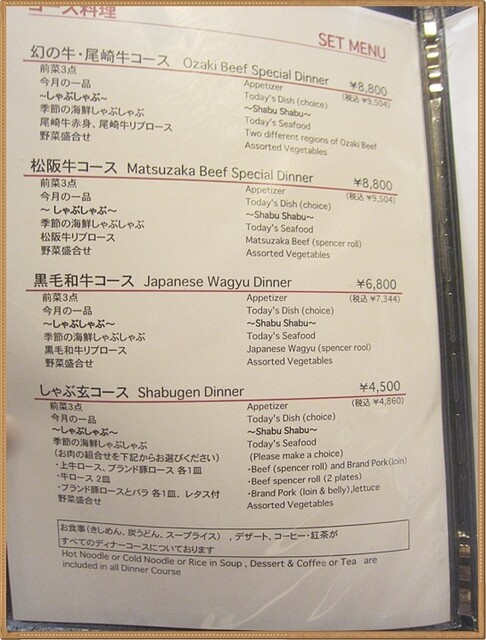 コース料理
SET MENU
幻の牛・尾崎牛コース Ozaki Beef Special Dinner ¥8,800
(税込 ¥9,504)
前菜3点 Appetizer
今月の一品 Today's Dish (choice)
～しゃぶしゃぶ～ ～Shabu Shabu～
季節の海鮮しゃぶしゃぶ Today's Seafood
尾崎牛赤身、尾崎牛リブロース Two different regions of Ozaki Beef
野菜盛合せ Assorted Vegetables
松阪牛コース Matsuzaka Beef Special Dinner ¥8,800
(税込 ¥9,504)
前菜3点 Appetizer
今月の一品 Today's Dish (choice)
～しゃぶしゃぶ～ ～Shabu Shabu～
季節の海鮮しゃぶしゃぶ Today's Seafood
松阪牛リブロース Matsuzaka Beef (spencer roll)
野菜盛合せ Assorted Vegetables
黒毛和牛コース Japanese Wagyu Dinner ¥6,800
(税込 ¥7,344)
前菜3点 Appetizer
今月の一品 Today's Dish (choice)
～しゃぶしゃぶ～ ～Shabu Shabu～
季節の海鮮しゃぶしゃぶ Today's Seafood
黒毛和牛リブロース Japanese Wagyu (spencer rool)
野菜盛合せ Assorted Vegetables
しゃぶ玄コース Shabugen Dinner ¥4,500
(税込 ¥4,860)
前菜3点 Appetizer
今月の一品 Today's Dish (choice)
～しゃぶしゃぶ～ ～Shabu Shabu～
季節の海鮮しゃぶしゃぶ Today's Seafood
(お肉の組合せを下記からお選びください) (Please make a choice)
・上牛ロース、ブランド豚ロース 各1皿 ・Beef (spencer roll) and Brand Pork(loin)
・牛ロース 2皿 ・Beef (spencer roll) (2 plates)
・ブランド豚ロースとバラ 各1皿、レタス付 ・Brand Pork (loin & belly),lettuce
野菜盛合せ Assorted Vegetables
お食事(きしめん、炭うどん、スープライス)、デザート、コーヒー・紅茶が
すべてのディナーコースについております
Hot Noodle or Cold Noodle or Rice in Soup , Dessert & Coffee or Tea are
included in all Dinner Course